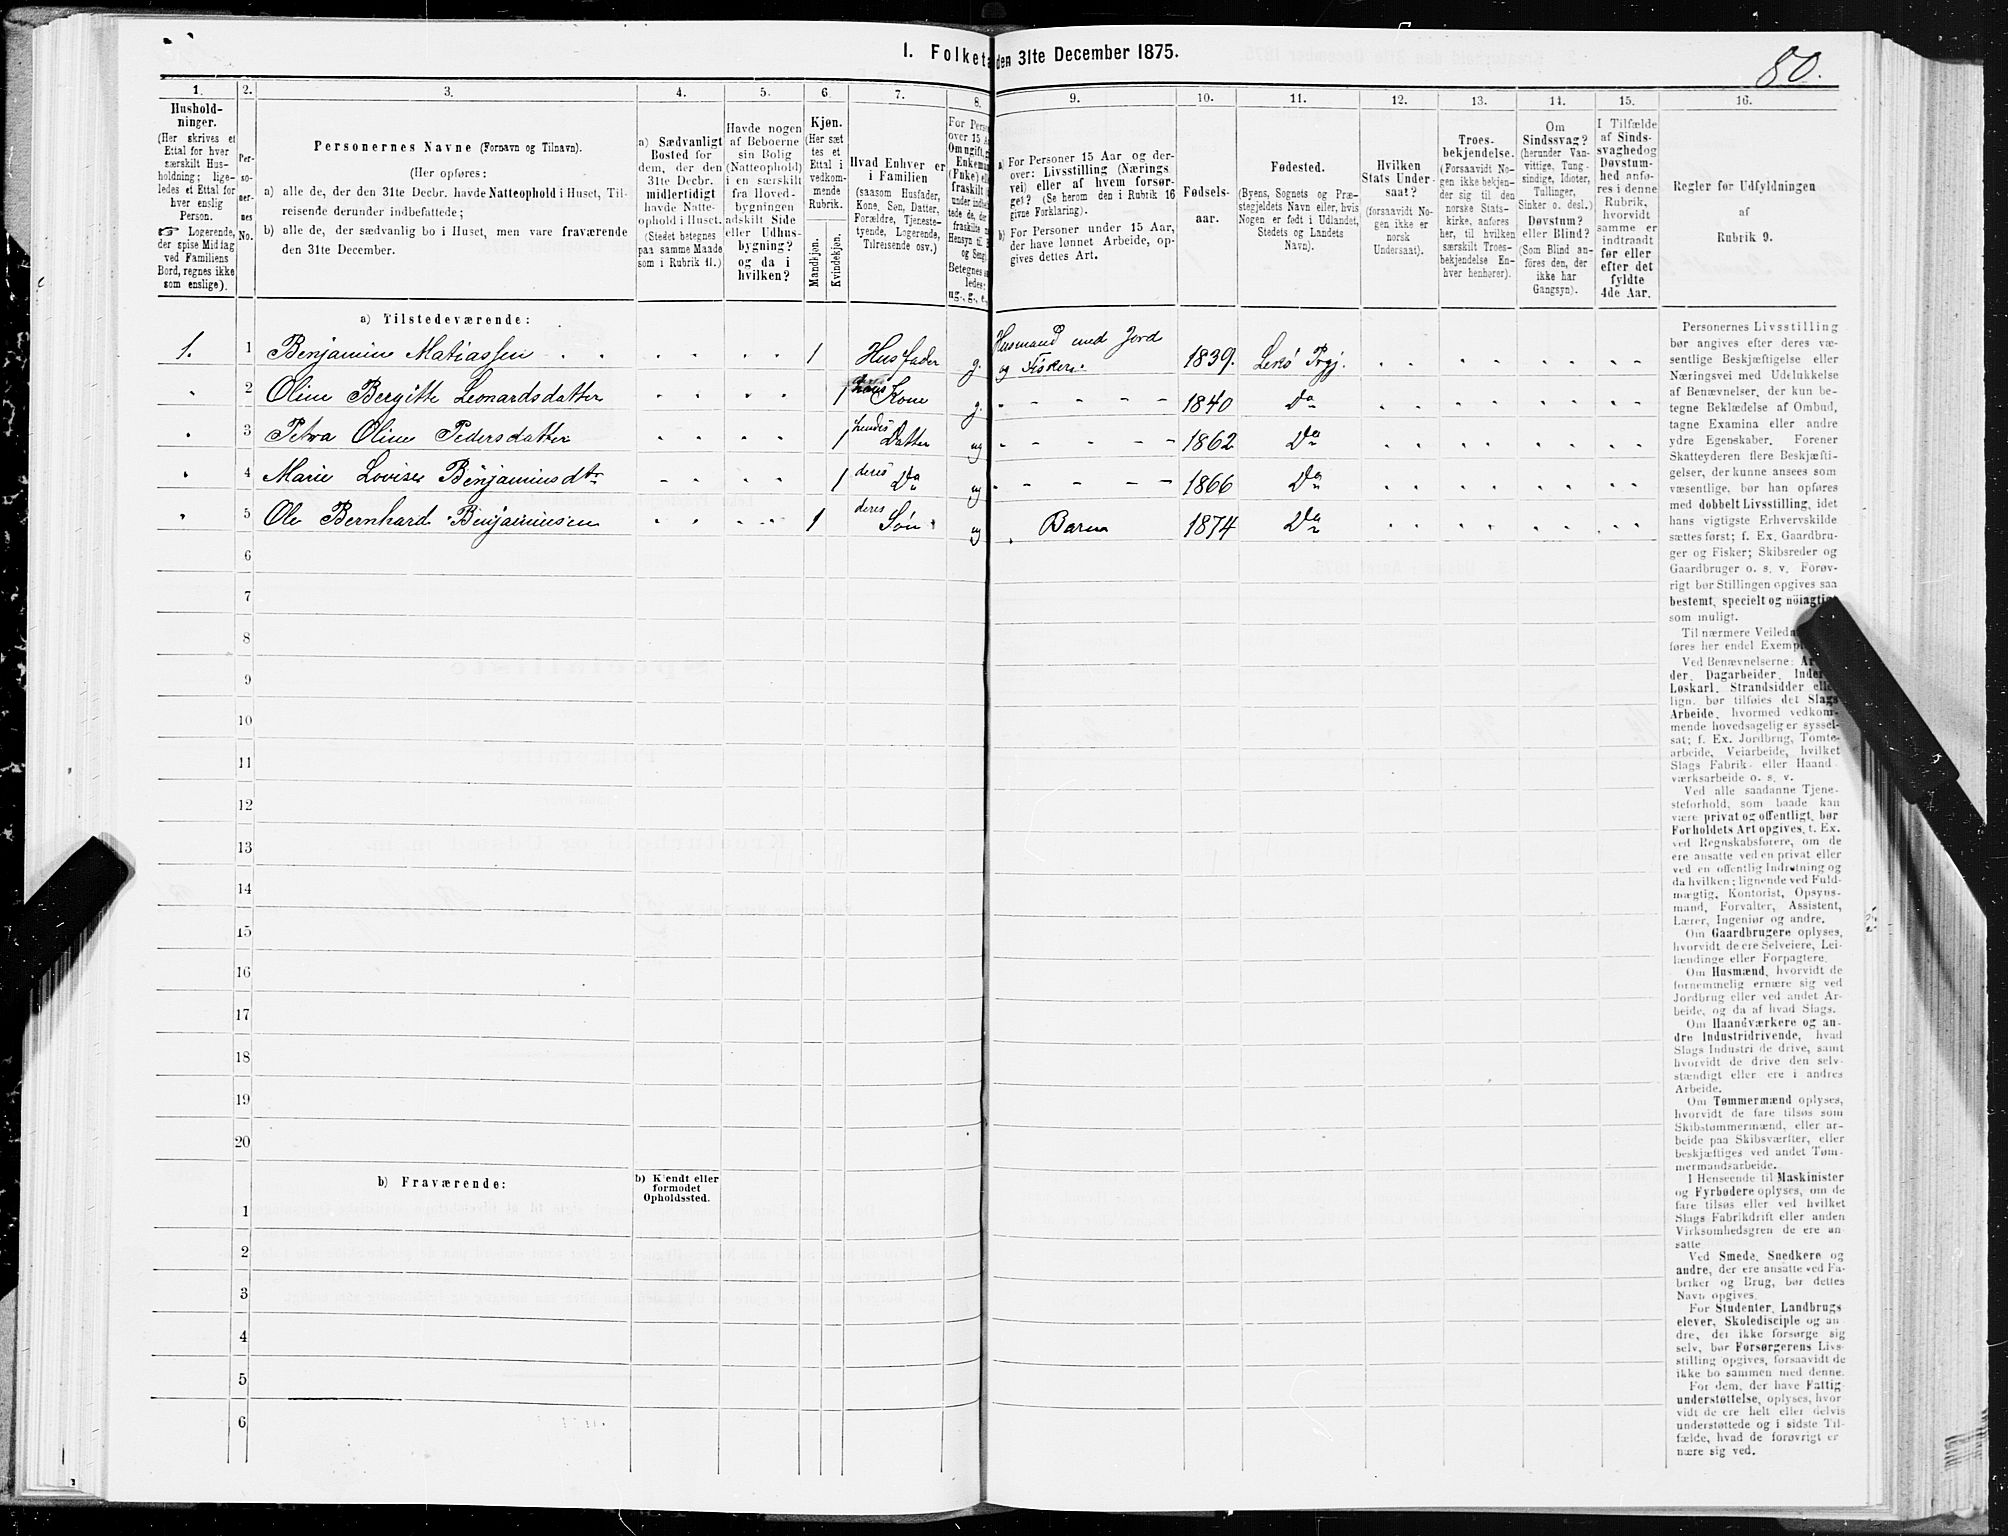 I. Folketæ den 31te December 1875.
80.
1.
2.
3.
4.
5.
6.
7.
8.
9.
10.
11.
12.
13.
14.
15.
16.
Hushold-
ninger.
(Her skrives et
Ettal for hver
særskilt Hus-
holdning; lige-
ledes et Ettal for
hver enslig
Person.
☞ Logerende,
der spise Middag
ved Familiens
Bord, regnes ikke
som enslige).
Per-
so-
ner-
nes
No.
Personernes Navne (Fornavn og Tilnavn).
(Her opføres:
a) alle de, der den 31te Decbr. havde Natteophold i Huset, Til-
reisende derunder indbefattede;
b) alle de, der sædvanlig bo i Huset, men vare fraværende
den 31te December.
a) Sædvanligt
Bosted for
dem, der den
31te Decbr.
midlertidigt
havde Natte-
ophold i Huset.
(Stedet betegnes
paa samme Maade
som i Rubrik 11.)
Havde nogen
af Beboerne
sin Bolig
(Natteophold)
i en særskilt
fra Hoved-
bygningen
adskilt Side
eller Udhus-
bygning?
og da i
hvilken?
Kjøn.
(Her sæt
tes et
Ettal i
vedkom-
mende
Rubrik.
Mandkjøn.
Kvindekjøn.
Hvad Enhver er
i Familien
(saasom Husfader,
Kone, Søn, Datter,
Forældre, Tjeneste-
tyende, Logerende,
Tilreisende osv.)
For Pers
over 15 A
Om ugift, g
Enkema
(Enke) el
fraskilt
under indb
tede de, de
fraskilte
Hensyn til
og Seng
Betegnes s
ledes:
ug., g., e.,
a) For Personer 15 Aar og der-
over: Livsstilling (Nærings
vei) eller af hvem forsør-
get? (Se herom den i Rubrik 16
givne Forklaring).
b) For Personer under 15 Aar,
der have lønnet Arbeide, op-
gives dettes Art.
Fødsels-
aar.
Fødested.
(Byens, Sognets og Præ-
stegjeldets Navn eller, hvis
Nogen er født i Udlandet,
Stedets og Landets
Navn).
Hvilken
Stats Under-
saat?
(forsaavidt No-
gen ikke er
norsk
Undersaat).
Troes-
bekjendelse.
(Forsaavidt No-
gen ikke bekjen-
der sig til den
norske Stats-
kirke, anføres
her, til hvilken
særskilt Troes-
bekjendelse En-
hver henhører).
Om
Sindssvag?
(herunder Van-
vittige, Tung-
sindige, Idioter,
Tullinger,
Sinker o. desl.)
Døvstum?
eller Blind?
(Som Blind an-
føres den, der
ikke har
Gangsyn).
I Tilfælde
af Sinds-
svaghed og
Døvstum-
hed anfø-
res i denne
Rubrik,
hvorvidt
samme er
indtraadt
før eller
efter det
fyldte
4de Aar.
Regler for Udfyldningen
af
Rubrik 9.
a) Tilstedeværende:
1. 1 Benjamin Matiassen 1 Husfader g. Husmand med Jord og Fisker. 1839. Lekø Prgj.
2 Oline Bergitte Leonardsdatter 1 hans Kone g. 1840 Do
3 Petra Oline Pedersdatter 1 hendes Datter ug 1862 Do
4 Marie Lovise Benjaminsdtr 1 deres Do ug 1866 Do
5 Ole Bernhard Benjaminsen 1 deres Søn ug Barn 1874 Do
6
7
8
9
10
11
12
13
14
15
16
17
18
19
20
b) Fraværende:
b) Kjendt eller
formodet
Opholdssted.
1
2
3
4
5
6
Personernes Livsstilling
bør angives efter deres væ-
sentlige Beskjæftigelse eller
Næringsvei med Udelukkelse
af Benævnelser, der kun be-
tegne Beklædelse af Ombud,
tagne Examina eller andre
ydre Egenskaber. Forener
Skatteyderen flere Beskjæfti-
gelser, der kunne ansees som
væsentlige, bør han opføres
med dobbelt Livsstilling, idet
hans vigtigste Erhvervskilde
sættes først; f. Ex. Gaardbru-
ger og Fisker; Skibsreder og
Gaardbruger o. s. v. Forøv-
rigt bør Stillingen opgives saa
bestemt, specielt og nöiagtig
som muligt.
Til nærmere Veiledn
føres her endel Exemp
Ved Benævnelserne: Ar
der, Dagarbeider, Inder
Løskarl, Strandsidder elle
lign. bør tilføies det Slags
Arbeide, hvormed vedkom-
mende hovedsagelig er syssel-
sat; f. Ex. Jordbrug, Tomte-
arbeide, Veiarbeide, hvilket
Slags Fabrik- eller Haand-
værksarbeide o. s. v.
Ved alle saadanne Tjene-
steforhold, som baade kan
være privat og offentligt, bør
Forholdets Art opgives, t. Ex.
ved Regnskabsførere, om de
ere ansatte ved en privat eller
ved en offentlig Indretning og
da hvilken; lignende ved Fuld-
mægtig, Kontorist, Opsyns-
mand, Forvalter, Assistent,
Lærer, Ingeniør og andre.
Om Gaardbrugere oplyses,
hvorvidt de ere Selveiere, Lei-
lændinge eller Forpagtere.
Om Husmænd, hvorvidt de
fornemmelig ernære sig ved
Jordbrug eller ved andet Ar-
beide, og da af hvad Slags.
Om Haandværkere og an-
dre Industridrivende, hvad
Slags Industri de drive, samt
hvorvidt de drive den selv-
stændigt eller ere i andres
Arbeide.
Om Tømmermænd oplyses,
hvorvidt de fare tilsøs som
Skibstømmermænd, eller ar-
beide paa Skibsværfter, eller
beskjæftiges ved andet Tøm-
mermandsarbeide.
I Henseende til Maskinister
og Fyrbødere oplyses, om de
fare tilsøs eller ved hvilket
Slags Fabrikdrift eller anden
Virksomhedsgren de ere an-
satte
Ved Smede, Snedkere og
andre, der ere ansatte ved Fa-
briker og Brug, bør dettes
Navn opgives.
For Studenter, Landbrugs
elever, Skoledisciple og an
dre, der ikke forsørge sig
selv, bør Forsørgerens Livs-
stilling opgives, forsaavidt de
ikke bo sammen med denne.
For dem, der have Fattig
understøttelse, oplyses, hvor
vidt de ere helt eller delvis
understøttede og i sidste Til-
fælde, hvad de forøvrigt er
nære sig ved.